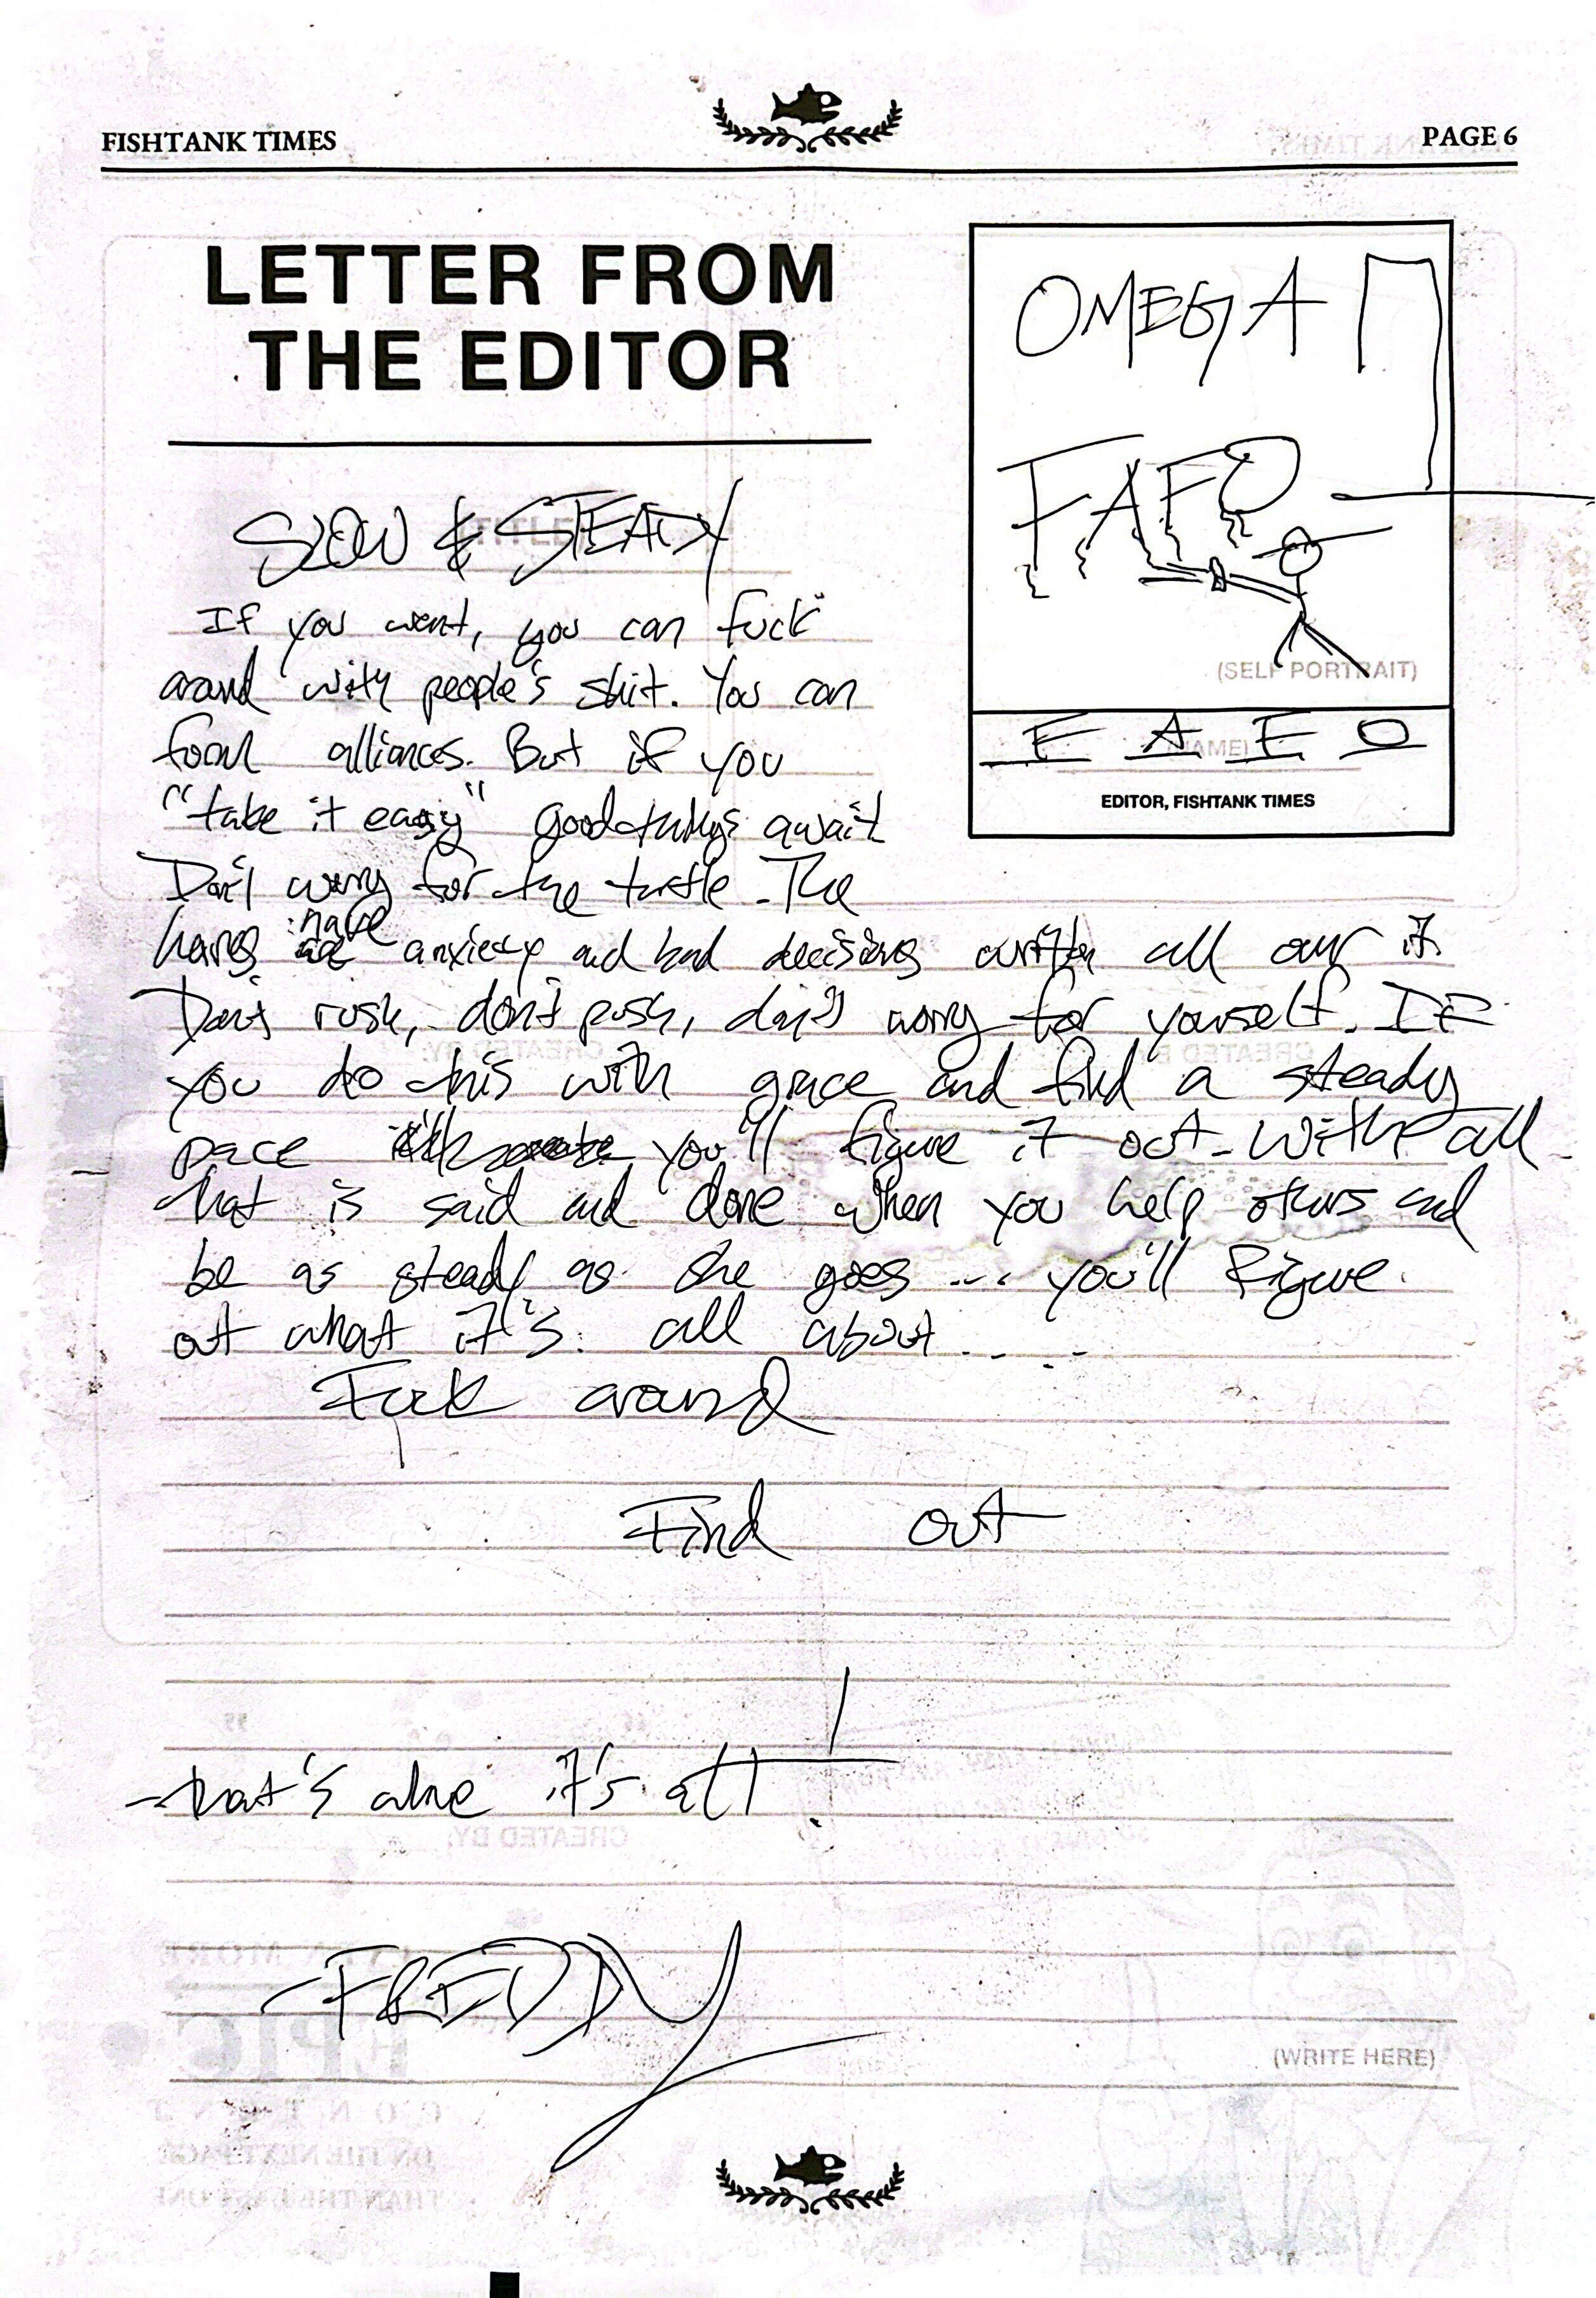 FISHTANK TIMES
PAGE 6
LETTER FROM
THE EDITOR
OMEGA
FAFO
(SELF PORTRAIT)
FAFO
(NAME)
EDITOR, FISHTANK TIMES
SLOW & STEADY
(TITLE)
If you want, you can fuck
around with people's shit. You can
form alliances. But if you
"take it easy" good things await
Don't worry for the turtle. The
hares have anxiety and bad decisions written all over it.
Don't rush, don't push, don't worry for yourself. IF
you do this with grace and find a steady
pace you'll figure it out. With all
that is said and done when you help others and
be as steady as she goes ... you'll figure
out what it's all about.....
Fuck around
Find out
that's all
FREDDY
(WRITE HERE)